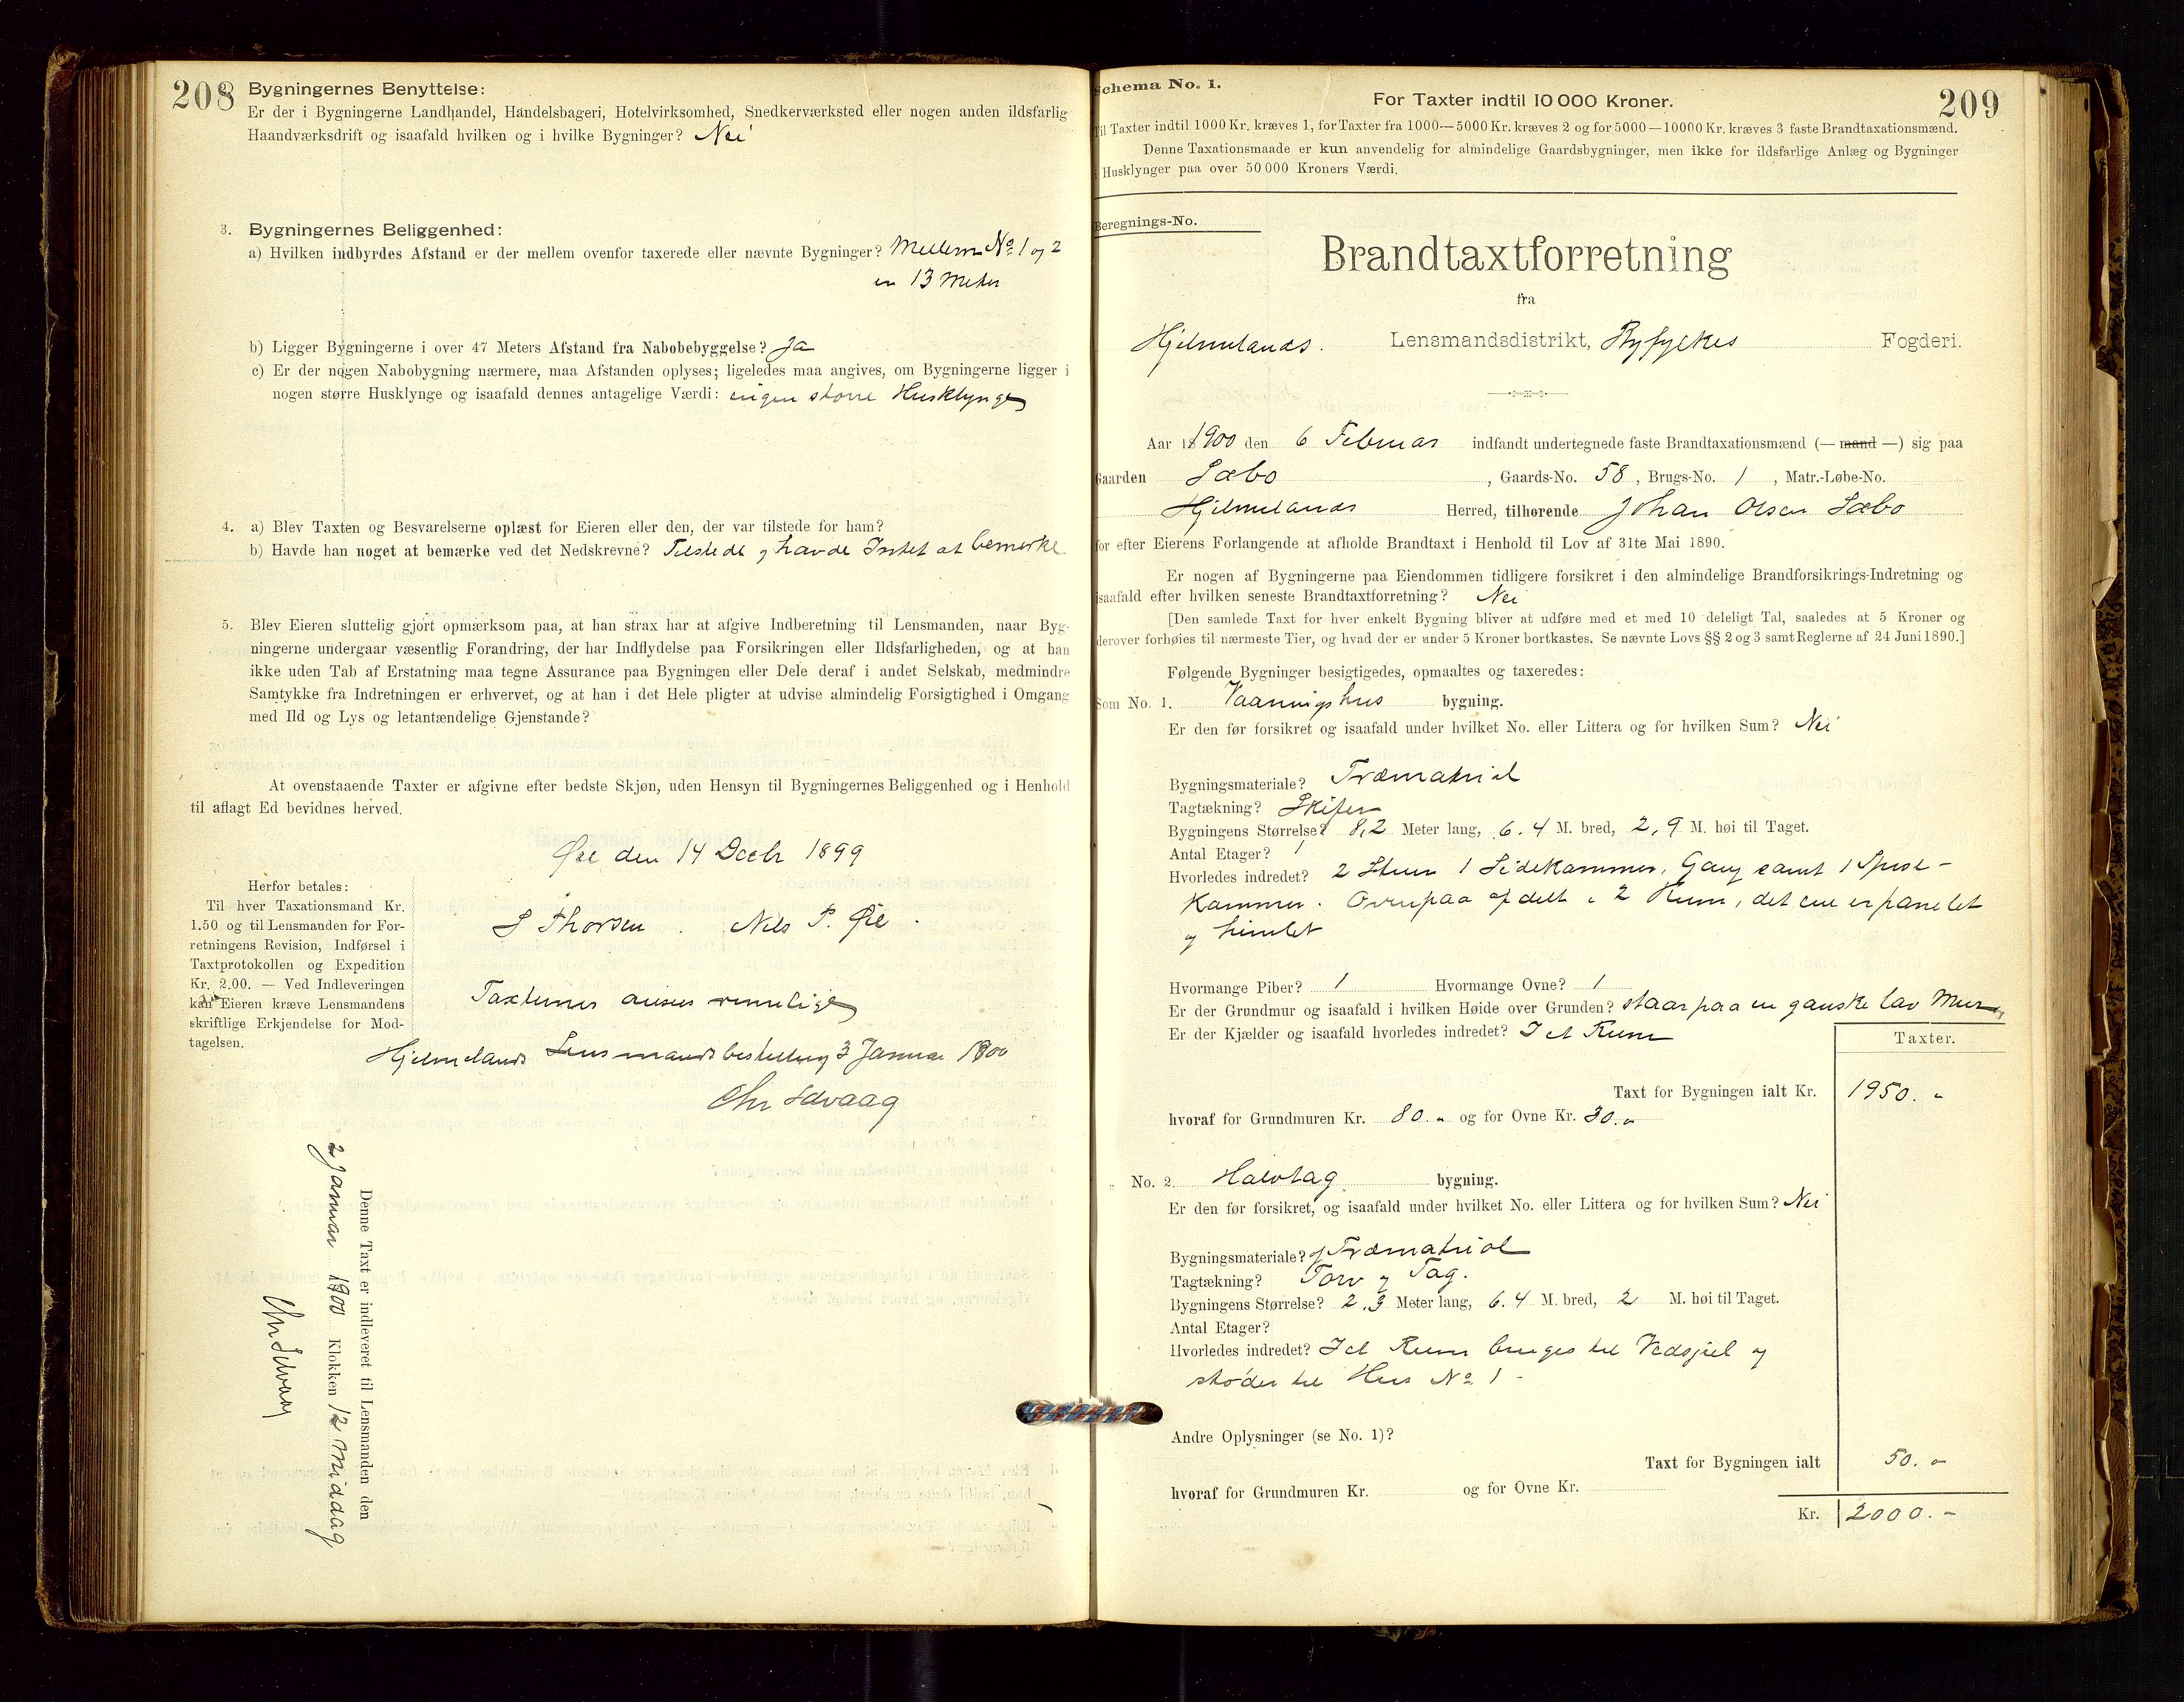 208
Bygningernes Benyttelse:
Er der i Bygningerne Landhandel, Handelsbageri, Hotelvirksomhed, Snedkerværksted eller nogen anden ildsfarlig
Haandværksdrift og isaafald hvilken og i hvilke Bygninger? Nei
3. Bygningernes Beliggenhed:
a) Hvilken indbyrdes Afstand er der mellem ovenfor taxerede eller nævnte Bygninger? Mellem No 1 og 2
er 13 Meter
b) Ligger Bygningerne i over 47 Meters Afstand fra Nabobebyggelse? Ja
c) Er der nogen Nabobygning nærmere, maa Afstanden oplyses; ligeledes maa angives, om Bygningerne ligger i
nogen større Husklynge og isaafald dennes antagelige Værdi: ingen større Husklynge
4. a) Blev Taxten og Besvarelserne oplæst for Eieren eller den, der var tilstede for ham?
b) Havde han noget at bemærke ved det Nedskrevne? Tilstede og havde Intet at bemærke
5. Blev Eieren sluttelig gjort opmærksom paa, at han strax har at afgive Indberetning til Lensmanden, naar Byg-
ningerne undergaar væsentlig Forandring, der har Indflydelse paa Forsikringen eller Ildsfarligheden, og at han
ikke uden Tab af Erstatning maa tegne Assurance paa Bygningen eller Dele deraf i andet Selskab, medmindre
Samtykke fra Indretningen er erhvervet, og at han i det Hele pligter at udvise almindelig Forsigtighed i Omgang
med Ild og Lys og letantændelige Gjenstande?
At ovenstaaende Taxter er afgivne efter bedste Skjøn, uden Hensyn til Bygningernes Beliggenhed og i Henhold
til aflagt Ed bevidnes herved.
Øie den 14 Decbr 1899
Herfor betales:
Til hver Taxationsmand Kr.
1.50 og til Lensmanden for For-
retningens Revision, Indførsel i
Taxtprotokollen og Expedition
Kr. 2.00. — Ved Indleveringen
kan Eieren kræve Lensmandens
skriftlige Erkjendelse for Mod-
tagelsen.
S Thorsen . Nils P. Øie .
Taxterne ansees rimelige
Hjelmelands Lensmandsbestilling 3 Januar 1900
Chr Selvaag
Denne Taxt er indleveret til Lensmanden den
2 Januar 1900 Klokken 12 Middag
Chr Selvaag
Schema No. 1.
209
For Taxter indtil 10 000 Kroner.
Til Taxter indtil 1000 Kr. kræves 1, for Taxter fra 1000—5000 Kr. kræves 2 og for 5000—10000 Kr. kræves 3 faste Brandtaxationsmænd.
Denne Taxationsmaade er kun anvendelig for almindelige Gaardsbygninger, men ikke for ildsfarlige Anlæg og Bygninger
i Husklynger paa over 50 000 Kroners Værdi.
Beregnings-No.
Brandtaxtforretning
fra
Hjelmelands. Lensmandsdistrikt, Ryfylkes Fogderi.
Aar 1900 den 6 Februar indfandt undertegnede faste Brandtaxationsmænd (— mand —) sig paa
Gaarden Sæbø , Gaards-No. 58, Brugs-No. 1 , Matr.-Løbe-No.
Hjelmelands Herred, tilhørende Johan Olsen Sæbø
for efter Eierens Forlangende at afholde Brandtaxt i Henhold til Lov af 31te Mai 1890.
Er nogen af Bygningerne paa Eiendommen tidligere forsikret i den almindelige Brandforsikrings-Indretning og
isaafald efter hvilken seneste Brandtaxtforretning? Nei
[Den samlede Taxt for hver enkelt Bygning bliver at udføre med et med 10 deleligt Tal, saaledes at 5 Kroner og
derover forhøies til nærmeste Tier, og hvad der er under 5 Kroner bortkastes. Se nævnte Lovs §§ 2 og 3 samt Reglerne af 24 Juni 1890.]
Følgende Bygninger besigtigedes, opmaaltes og taxeredes:
Som No. 1. Vaaningshus bygning.
Er den før forsikret og isaafald under hvilket No. eller Littera og for hvilken Sum? Nei
Bygningsmateriale? Træmatrial
Tagtækning? Skifer
Bygningens Størrelse? 8,2 Meter lang, 6.4 M. bred, 2,9 M. høi til Taget.
Antal Etager? 1
Hvorledes indredet? 2 Stuer 1 Sidekammer, Gang samt 1 Spise-
kammer. Ovenpaa afdelt i 2 Rum, det ene er panelet
og himlet
Hvormange Piber? 1 Hvormange Ovne? 1
Er der Grundmur og isaafald i hvilken Høide over Grunden? staar paa en ganske lav Mur
Er der Kjælder og isaafald hvorledes indredet? I et Rum
Taxter.
Taxt for Bygningen ialt Kr. 1950. "
hvoraf for Grundmuren Kr. 80. " og for Ovne Kr. 30. "
" No. 2. Halvtag bygning.
Er den før forsikret, og isaafald under hvilket No. eller Littera og for hvilken Sum? Nei
Bygningsmateriale? Træmatrial
Tagtækning? Torv og Tag.
Bygningens Størrelse? 2,3 Meter lang, 6.4 M. bred, 2 M. høi til Taget.
Antal Etager?
Hvorledes indredet? I et Rum bruges til Vedsjul og
støder til Hus No 1 -
Andre Oplysninger (se No. 1)?
Taxt for Bygningen ialt 50. "
hvoraf for Grundmuren Kr. og for Ovne Kr.
Kr. 2000. -